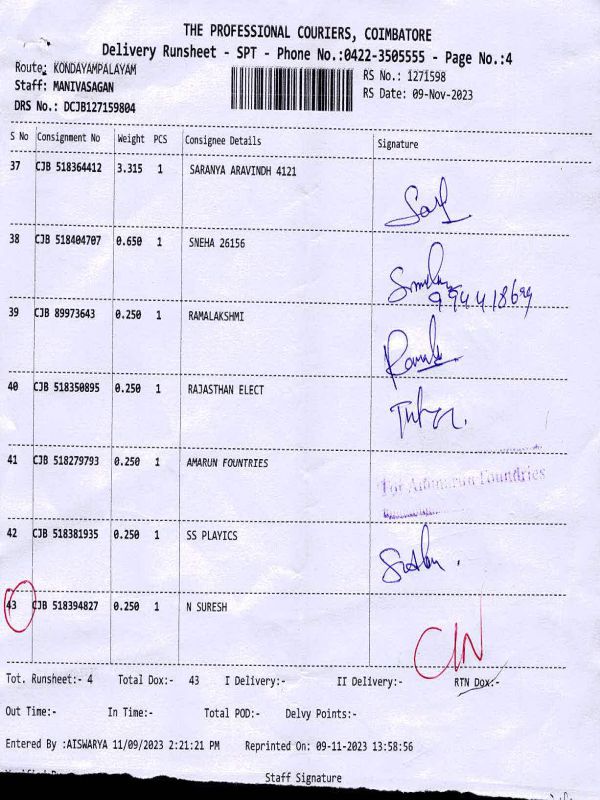 THE PROFESSIONAL COURIERS, COIMBATORE
Delivery Runsheet - SPT - Phone No.:0422-3505555 - Page No.:4
Route: KONDAYAMPALAYAM
RS No.: 1271598
Staff: MANIVASAGAN
RS Date: 09-Nov-2023
DRS No.: DCJB127159804
S No Consignment No Weight PCS Consignee Details Signature
37 CJB 518364412 3.315 1 SARANYA ARAVINDH 4121
38 CJB 518404707 0.650 1 SNEHA 26156
39 CJB 89973643 0.250 1 RAMALAKSHMI
40 CJB 518350895 0.250 1 RAJASTHAN ELECT
41 CJB 518279793 0.250 1 AMARUN FOUNTRIES
Foundries
42 CJB 518381935 0.250 1 SS PLAYICS
43 CJB 518394827 0.250 1 N SURESH
Tot. Runsheet:- 4 Total Dox:- 43 I Delivery:- II Delivery:- RTN Dox:-
Out Time:- In Time:- Total POD:- Delvy Points:-
Entered By :AISWARYA 11/09/2023 2:21:21 PM Reprinted On: 09-11-2023 13:58:56
Staff Signature